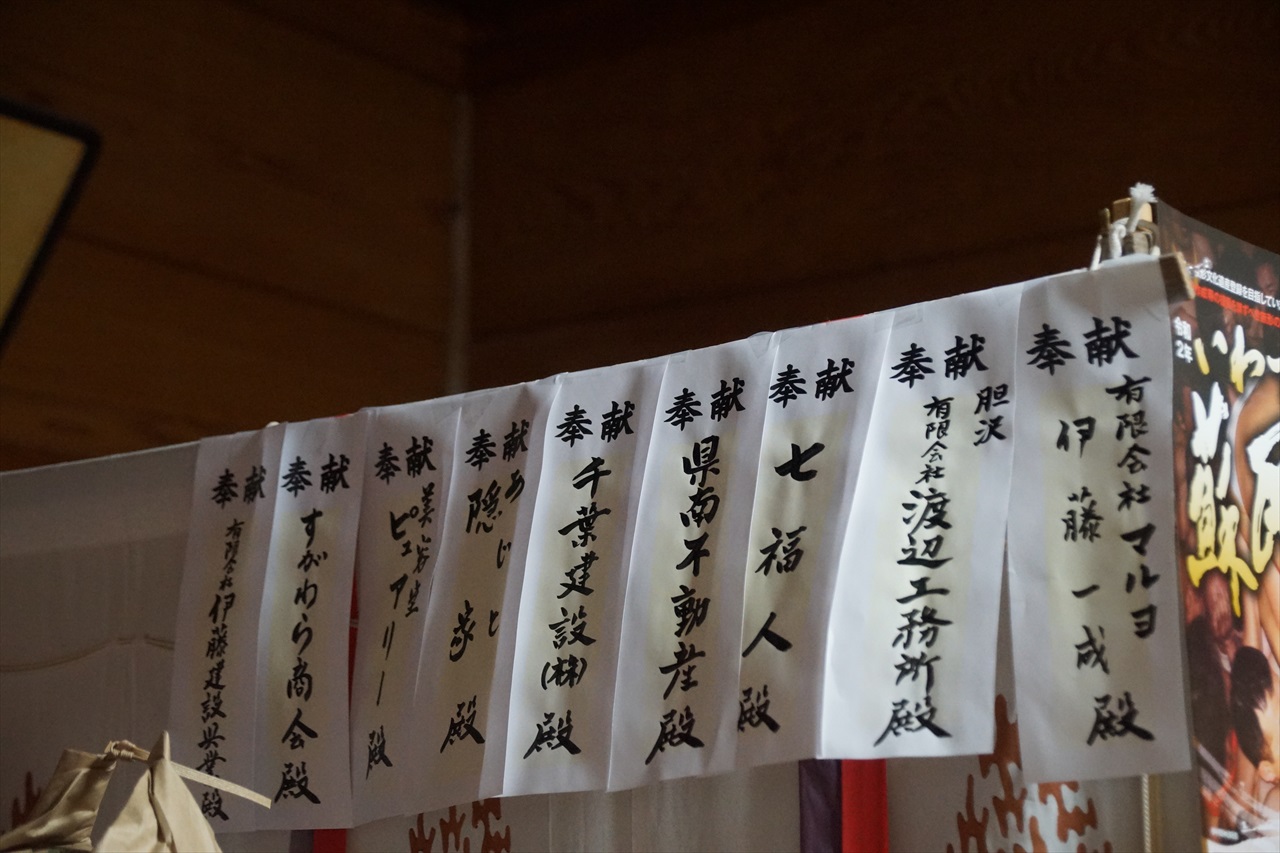 奉献
有限会社マルヨ
伊藤一成
殿
奉献
胆沢
有限会社渡辺工務所殿
奉献
七福人殿
奉献
県南不動産殿
奉献
千葉建設(株)殿
奉献
あじと
隠家
殿
奉献
美容室
ピュアリー殿
奉献
すがわら商会殿
奉献
有限会社伊藤建設興業殿
文化遺産登録を目指してい
令和2年
いわ
蘇